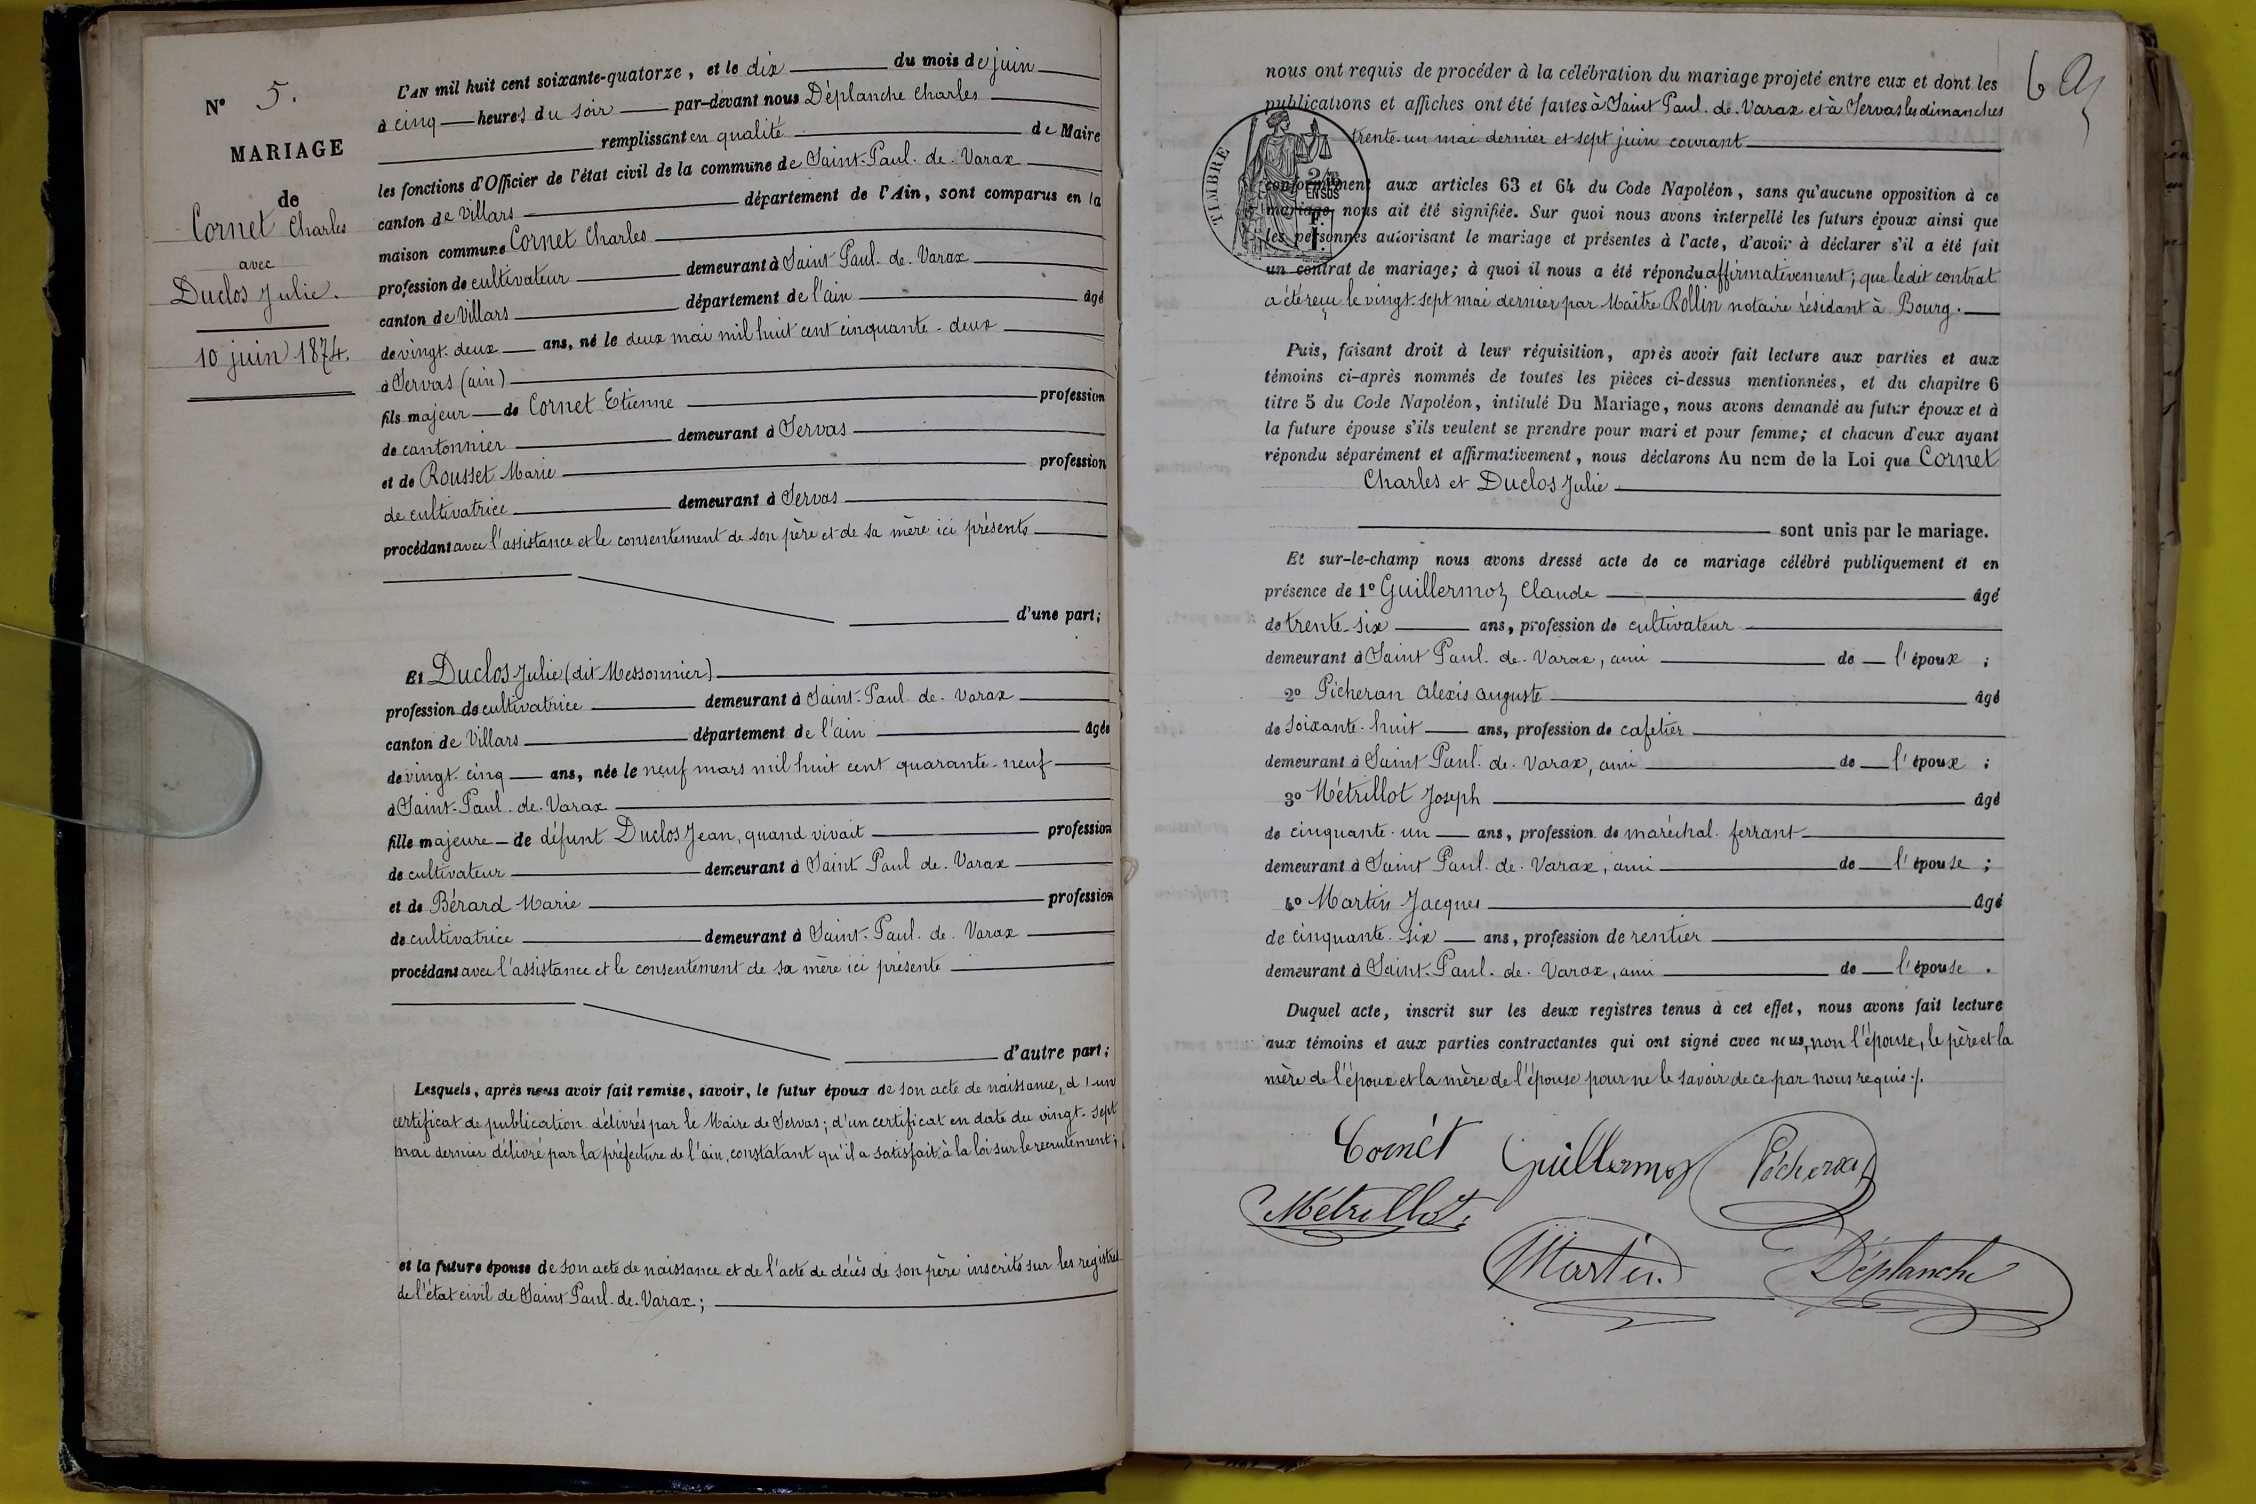 N° 5.
MARIAGE
de
Cornet Charles
avec
Duclos Julie.
10 juin 1874.
L'AN mil huit cent soixante-quatorze, et le dix du mois de juin
à cinq heures du soir par-devant nous Déplanche Charles
remplissant en qualité de Maire
les fonctions d'Officier de l'état civil de la commune de Saint-Paul-de-Varax
canton de Villars département de l'Ain, sont comparus en la
maison commune Cornet Charles
profession de cultivateur demeurant à Saint Paul-de-Varax
canton de Villars département de l'ain âgé
de vingt-deux ans, né le deux mai mil huit cent cinquante-deux
à Servas (ain)
fils majeur de Cornet Etienne profession
de cantonnier demeurant à Servas
et de Rousset Marie profession
de cultivatrice demeurant à Servas
procédant avec l'assistance et le consentement de son père et de sa mère ici présents
d'une part;
Et Duclos Julie (dit Messonnier)
profession de cultivatrice demeurant à Saint-Paul-de-Varax
canton de Villars département de l'ain âgée
de vingt-cinq ans, née le neuf mars mil huit cent quarante-neuf
à Saint-Paul-de-Varax
fille majeure de défunt Duclos Jean, quand vivait profession
de cultivateur demeurant à Saint Paul de-Varax
et de Bérard Marie profession
de cultivatrice demeurant à Saint-Paul-de-Varax
procédant avec l'assistance et le consentement de sa mère ici présente
d'autre part;
Lesquels, après nous avoir fait remise, savoir, le futur époux de son acte de naissance, d'un
certificat de publication délivrés par le Maire de Servas; d'un certificat en date du vingt-sept
mai dernier délivré par la préfecture de l'ain, constatant qu'il a satisfait à la loi sur le recrutement;
et la future épouse de son acte de naissance et de l'acte de décès de son père inscrits sur les registres
de l'état civil de Saint Paul-de-Varax;
nous ont requis de procéder à la célébration du mariage projeté entre eux et dont les
publications et affiches ont été faites à Saint Paul-de-Varax et à Servas les dimanches
trente-un mai dernier et sept juin courant
TIMBRE
2/10
EN SUS
F.
1.
conformément aux articles 63 et 64 du Code Napoléon, sans qu'aucune opposition à ce
mariage nous ait été signifiée. Sur quoi nous avons interpellé les futurs époux ainsi que
les personnes autorisant le mariage et présentes à l'acte, d'avoir à déclarer s'il a été fait
un contrat de mariage; à quoi il nous a été répondu affirmativement; que ledit contrat
a été reçu le vingt-sept mai dernier par Maître Rollin notaire résidant à Bourg.
Puis, faisant droit à leur réquisition, après avoir fait lecture aux parties et aux
témoins ci-après nommés de toutes les pièces ci-dessus mentionnées, et du chapitre 6
titre 5 du Code Napoléon, intitulé Du Mariage, nous avons demandé au futur époux et à
la future épouse s'ils veulent se prendre pour mari et pour femme; et chacun d'eux ayant
répondu séparément et affirmativement, nous déclarons Au nom de la Loi que Cornet
Charles et Duclos Julie
sont unis par le mariage.
Et sur-le-champ nous avons dressé acte de ce mariage célébré publiquement et en
présence de 1° Guillermoz Claude âgé
de trente-six ans, profession de cultivateur
demeurant à Saint Paul-de-Varax, ami de l'époux ;
2° Picheran Alexis Auguste âgé
de soixante-huit ans, profession de cafetier
demeurant à Saint Paul-de-Varax, ami de l'époux ;
3° Métrillot Joseph âgé
de cinquante-un ans, profession de maréchal-ferrant
demeurant à Saint Paul-de-Varax, ami de l'épouse ;
4° Martin Jacques âgé
de cinquante-six ans, profession de rentier
demeurant à Saint-Paul-de-Varax, ami de l'épouse .
Duquel acte, inscrit sur les deux registres tenus à cet effet, nous avons fait lecture
aux témoins et aux parties contractantes qui ont signé avec nous, non l'épouse, le père et la
mère de l'époux et la mère de l'épouse pour ne le savoir de ce par nous requis./.
Cornét Guillermoz Picheran
Métrillot
Martin Déplanche